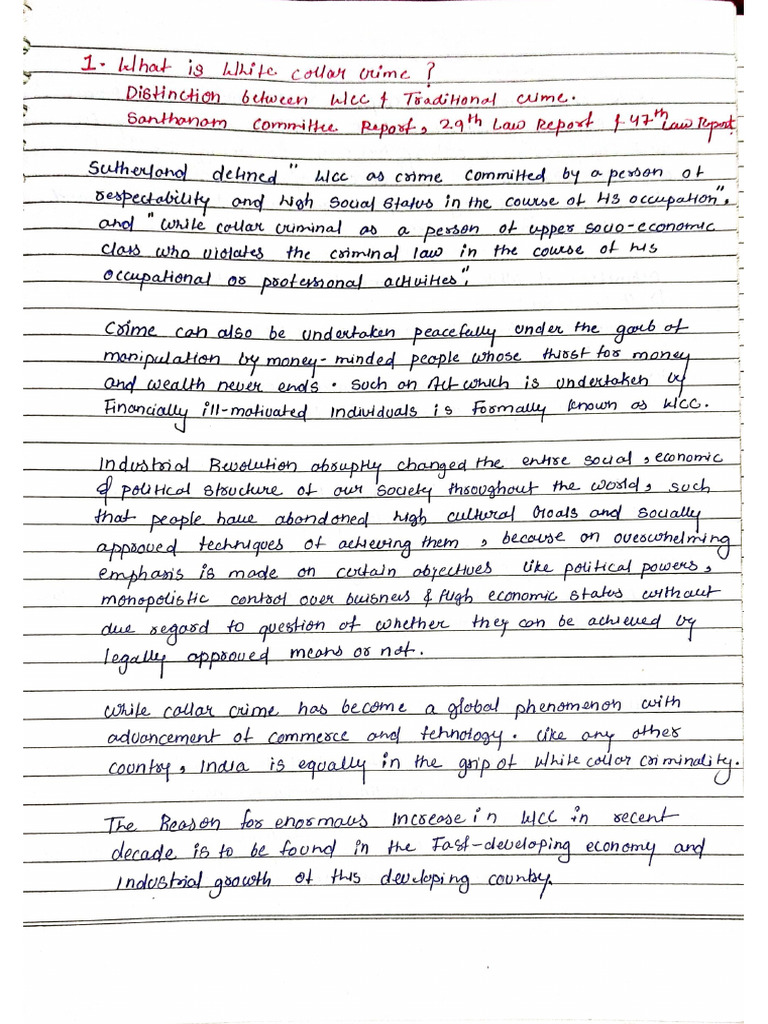 1. What is White collar crime?
Distinction between WCC & Traditional crime.
Santhanam Committee Report, 29th Law Report & 47th Law Report.
Sutherland defined "WCC as crime committed by a person of
respectability and high Social Status in the course of His occupation",
and "White collar criminal as a person of upper socio-economic
class who violates the criminal law in the course of his
occupational or professional activities".
Crime can also be undertaken peacefully under the garb of
manipulation by money-minded people whose thirst for money
and wealth never ends. Such an Act which is undertaken by
Financially ill-motivated individuals is Formally known as WCC.
Industrial Revolution abruptly changed the entire social, economic
& political structure of our society throughout the world, such
that people have abandoned high cultural Goals and socially
approved techniques of achieving them, because an overwhelming
emphasis is made on certain objectives like political powers,
monopolistic control over buisness & High economic status without
due regard to question of whether they can be achieved by
legally approved means or not.
White collar crime has become a global phenomenon with
advancement of commerce and tehnology. Like any other
country, India is equally in the grip of White collar criminality.
The Reason for enormous increase in WCC in recent
decade is to be found in the Fast-developing economy and
Industrial growth of this developing country.